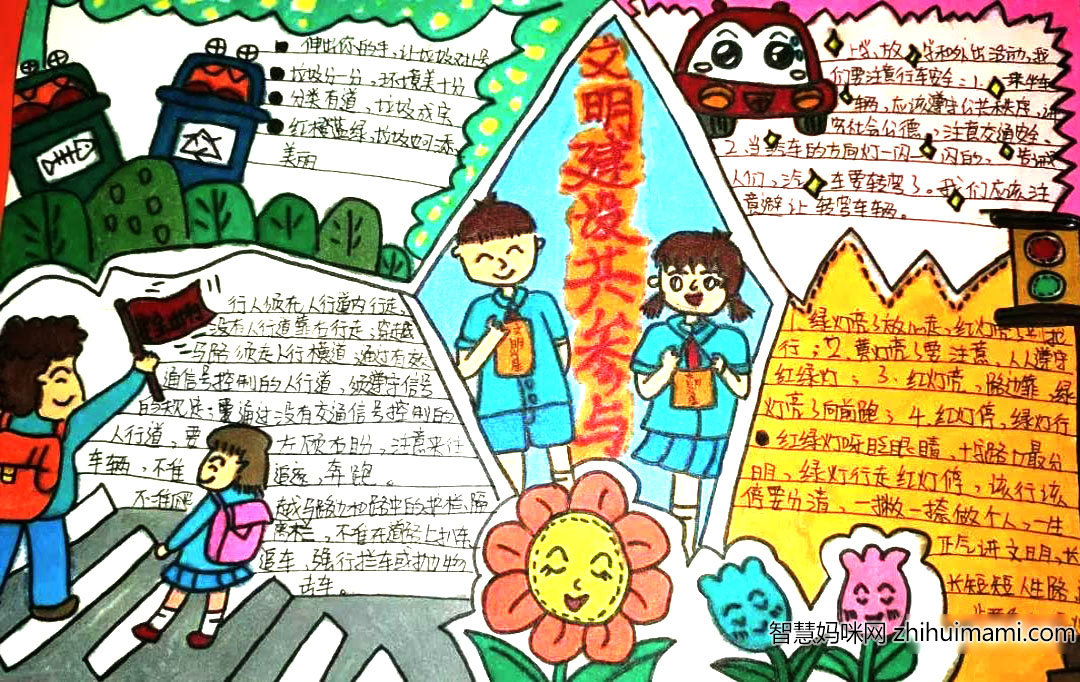 文明建设共参与
伸出你的手,让垃圾对号
垃圾分一分,环境美十分
分类有道,垃圾成宝
红橙蓝绿,垃圾也可添
美丽
上学、放学和外出活动,我
们要注意行车安全:1、乘坐车
辆,应该遵守公共秩序,讲
究社会公德,注意交通安全。
2、当车的方向灯一闪一闪的,告诫
人们,汽车要转弯了。我们应该注
意避让转弯车辆。
行人须在人行道内行走,
没有人行道靠右行走;穿越
马路须走人行横道;通过有
通信号控制的人行道,须遵守信号
的规定;要通过没有交通信号控制的
人行道,要左顾右盼,注意来往
车辆,不准追逐,奔跑。
不准
越马路边和路中的护栏、隔
离栏,不准在道路上扒车、
追车,强行拦车或抛物
击车。
1、绿灯亮了放心走,红灯亮
行;2、黄灯亮了要注意,人人遵守
红绿灯;3、红灯亮,路边靠,绿
灯亮了向前跑;4、红灯停,绿灯行
红绿灯呀眨眼睛,十字路口最分
明,绿灯行走红灯停,该行该
停要分清,一撇一捺做个人,一生
正气讲文明,长
长短短人生路,
智慧妈咪网 zhihuimami.com